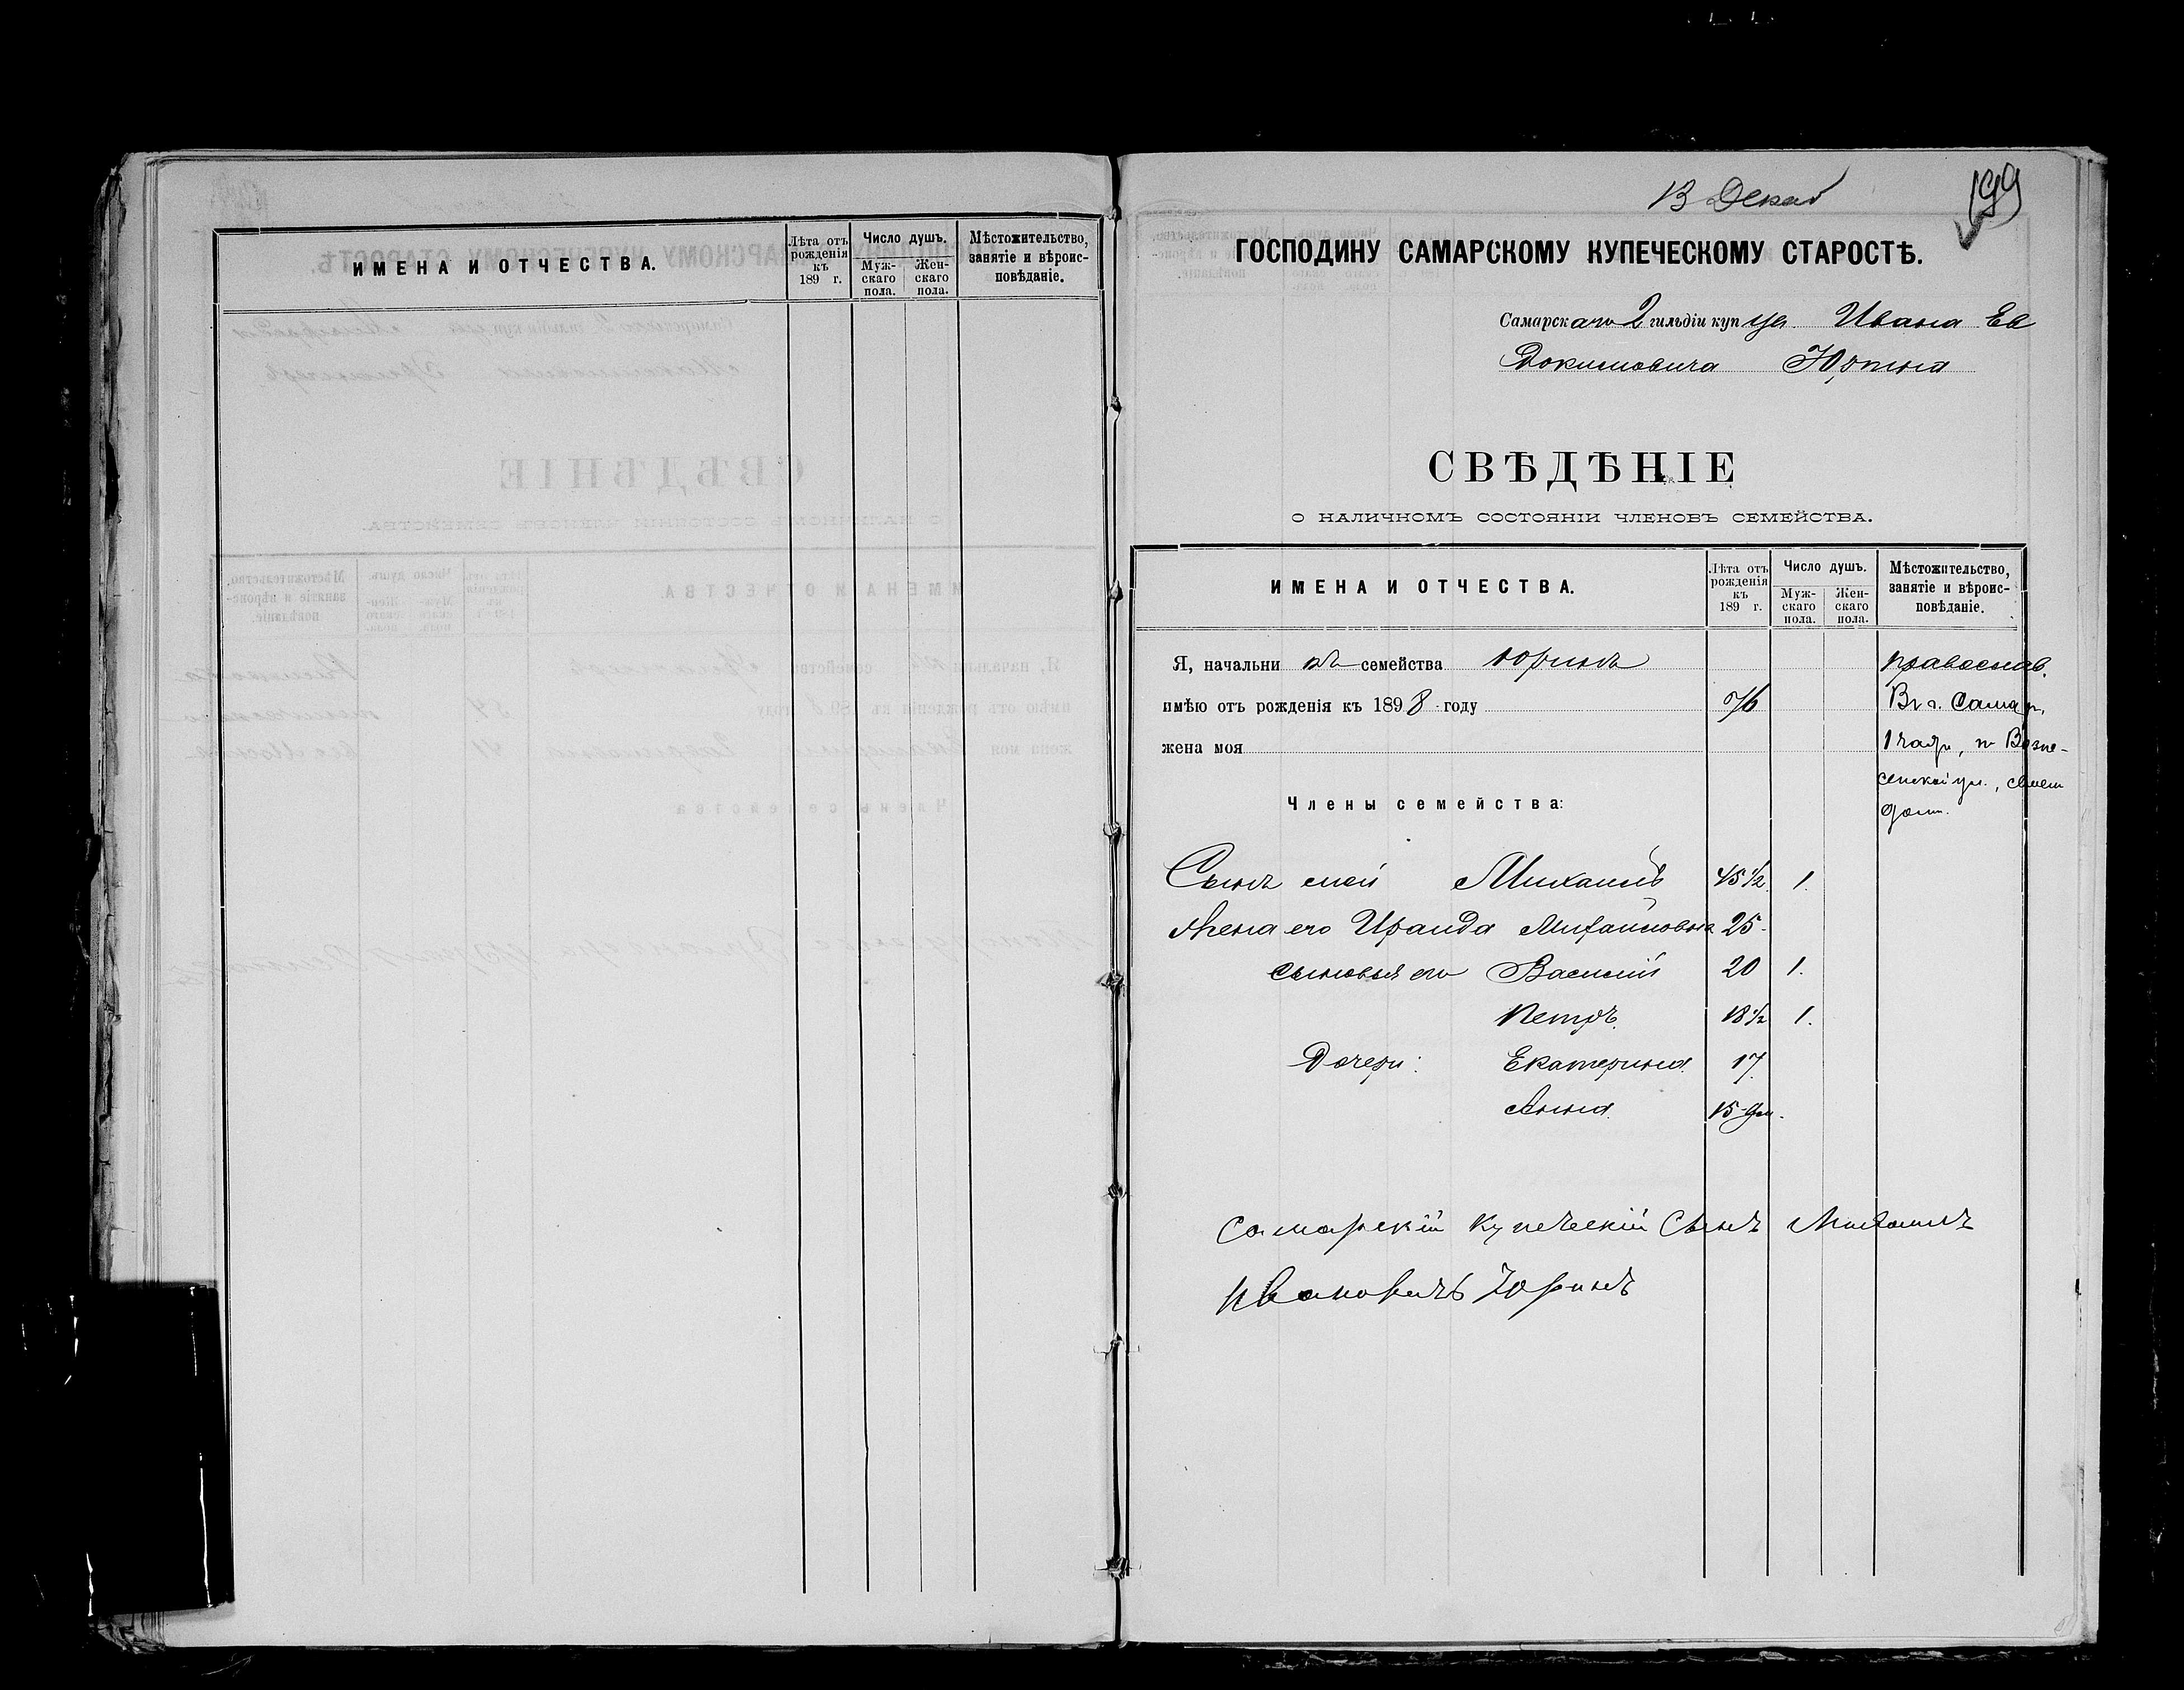 ИМЕНА И ОТЧЕСТВА.
Лѣта отъ рожденія къ 189 г.
Число душъ.
Мужскаго пола.
Женскаго пола.
Мѣстожительство, занятіе и вѣроисповѣданіе.
13 Декаб
199
ГОСПОДИНУ САМАРСКОМУ КУПЕЧЕСКОМУ СТАРОСТѢ.
Самарскаго 2 гильдіи купца Ивана Ев
докимовича Юрина
СВѢДѢНІЕ
О НАЛИЧНОМЪ СОСТОЯНІИ ЧЛЕНОВЪ СЕМЕЙСТВА.
ИМЕНА И ОТЧЕСТВА.
Лѣта отъ рожденія къ 189 г.
Число душъ.
Мужскаго пола.
Женскаго пола.
Мѣстожительство, занятіе и вѣроисповѣданіе.
Я, начальникъ семейства Юринъ православ.
имѣю отъ рожденія къ 1898 году 76 Въ г. Самар,
жена моя 1 части, по Возне-
сенской ул., своем
Члены семейства: доме.
Сынъ мой Михаилъ 45 1/2 1.
Жена его Ираида Михайловна 25
сыновья его Василій 20 1.
Петръ 18 1/2 1.
Дочери: Екатерина 17
Анна 15
Самарскій Купеческій Сынъ Михаилъ
Ивановичъ Юринъ